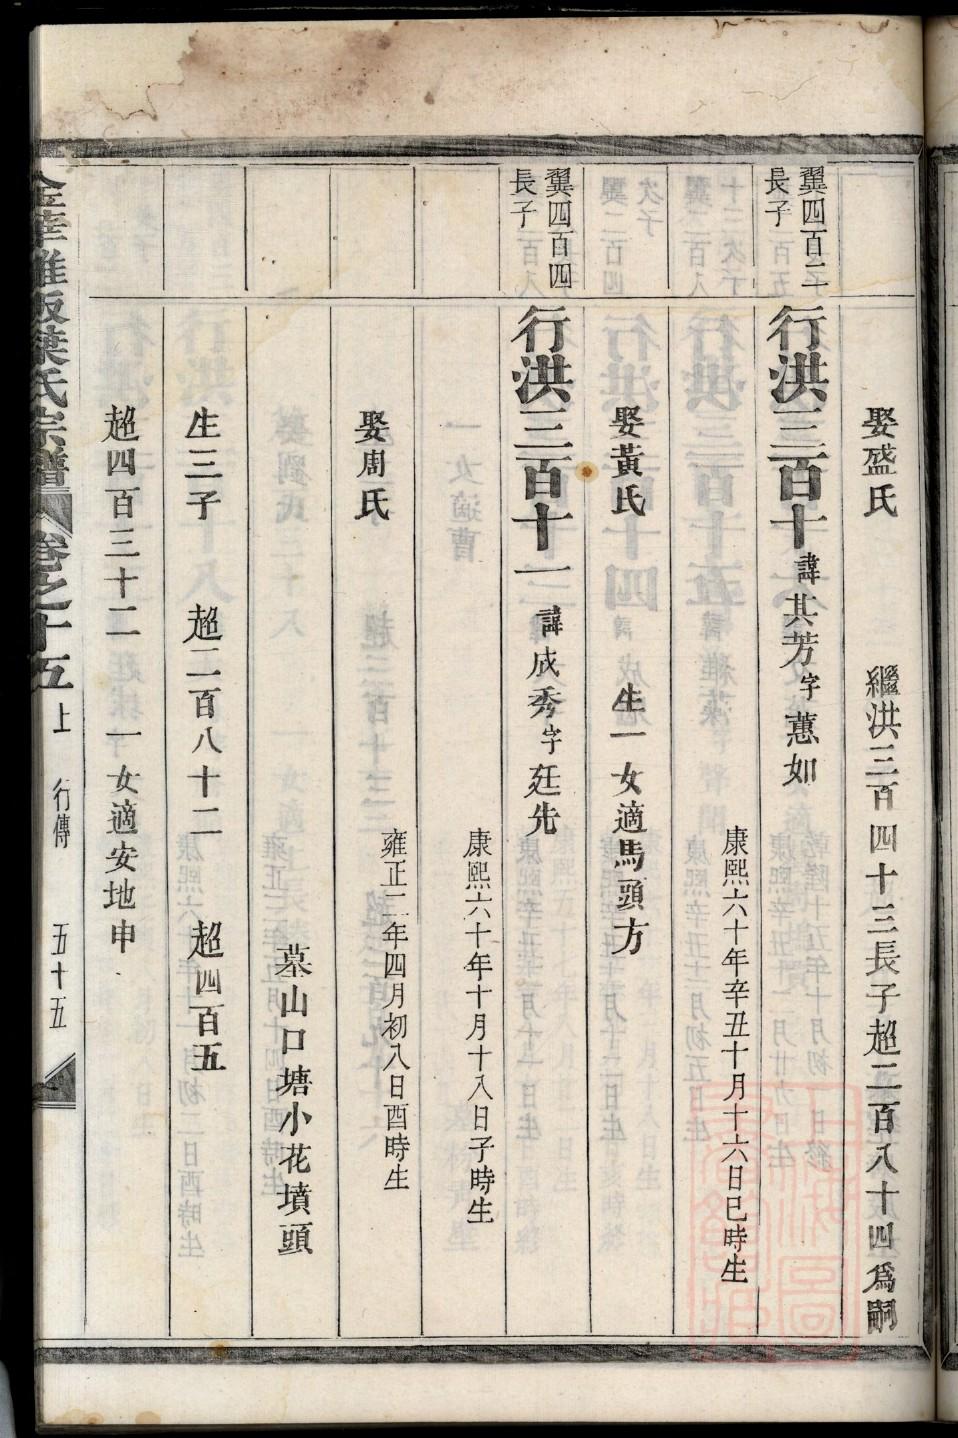 娶盛氏 繼洪三百四十三長子超二百八十四爲嗣
翼四百二
長子
行洪三百十 諱其芳字蕙如
康熙六十年辛丑十月十六日巳時生
娶黃氏 生一女適馬頭方
翼四百四
長子
行洪三百十一 諱成秀字廷先
康熙六十年十月十八日子時生
娶周氏 雍正二年四月初八日酉時生
墓山口塘小花墳頭
生三子 超二百八十二 超四百五
超四百三十二 一女適安地申
金華雅畈葉氏宗譜 卷之十五 上 行傳 五十五